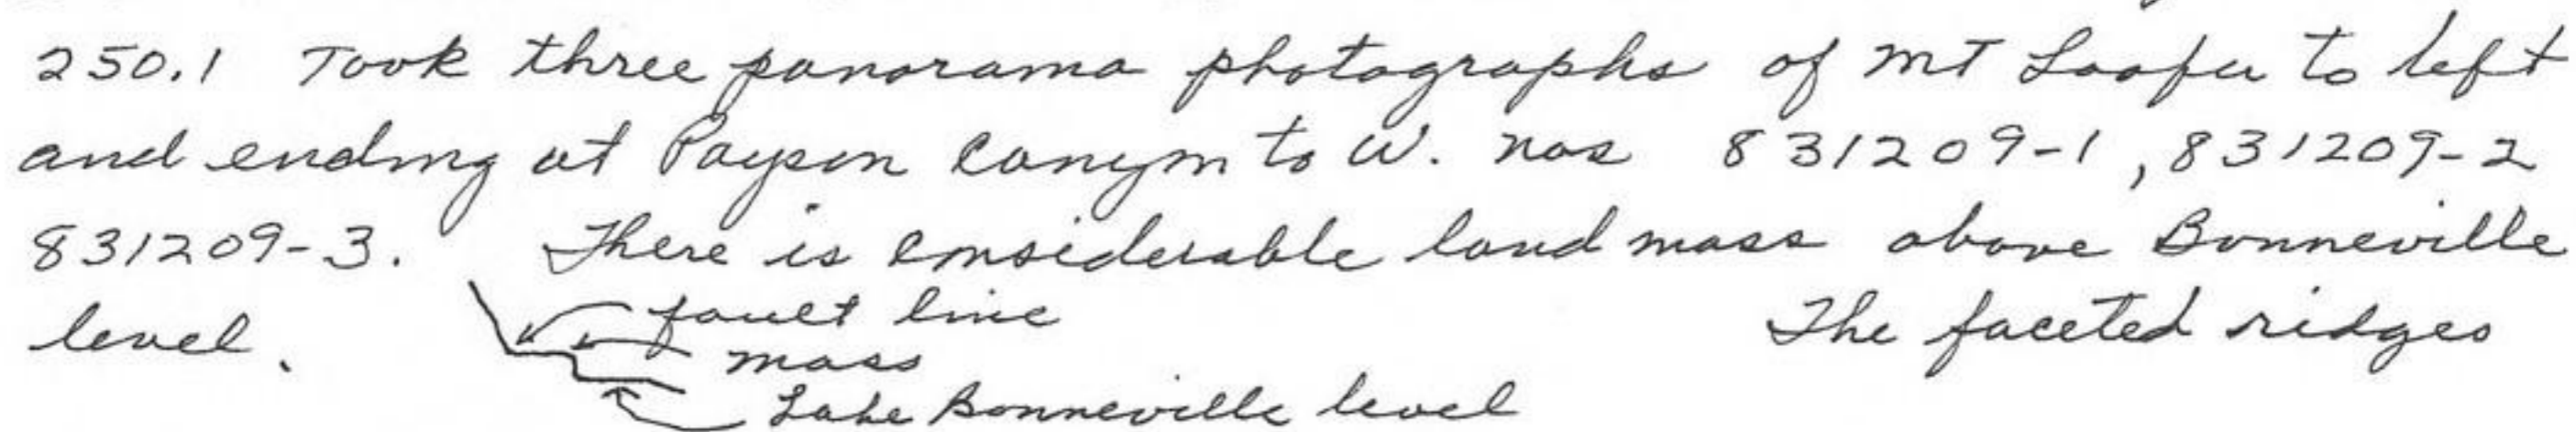 250.1 Took three panorama photographs of MT Loafer to left
and ending at Payson Canyon to W. nos 831209-1, 831209-2
831209-3. There is considerable land mass above Bonneville
level. fault line The faceted ridges
mass
Lake Bonneville level